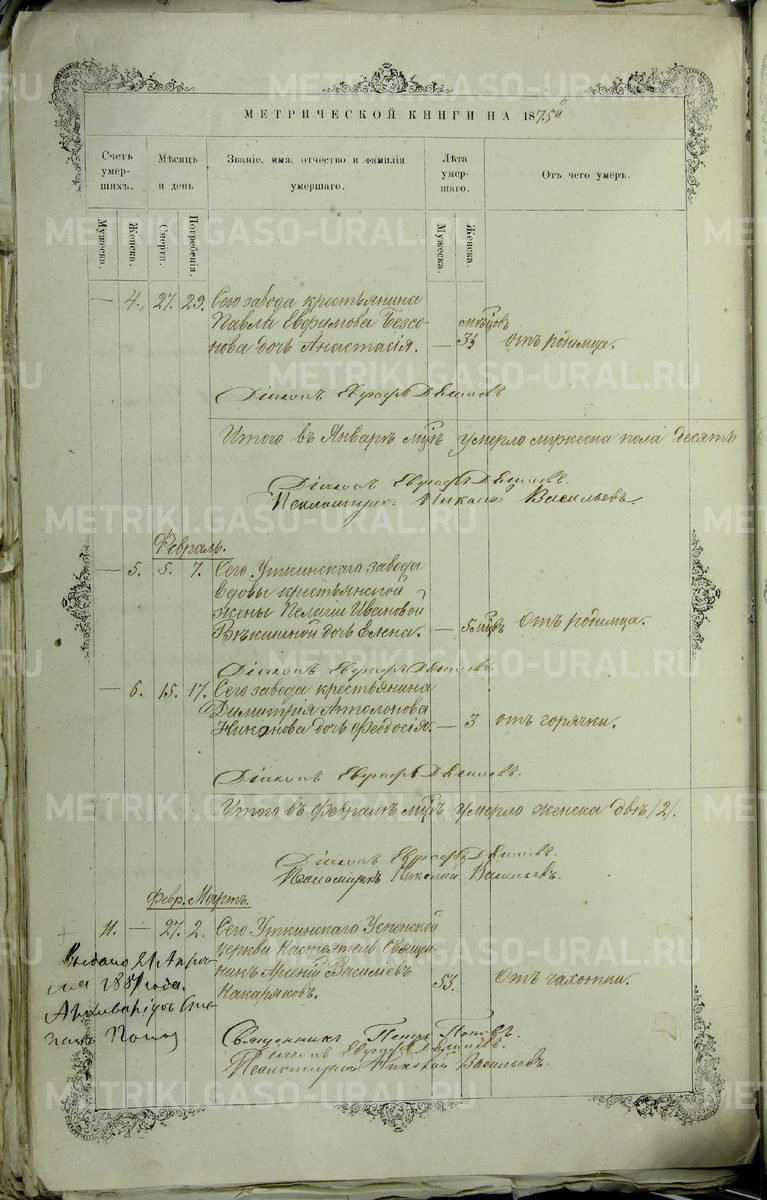 МЕТРИЧЕСКОЙ КНИГИ НА 1875й
Счетъ умер- шихъ.
Мѣсяцъ и день
Званіе, имя, отчество и фамилія умершаго.
Лѣта умер- шаго.
Отъ чего умеръ.
Мужеска.
Женска.
Смерти.
Погребенія.
Мужеска.
Женска.
— 4. 27. 29. Сего завода крестьянина
Павла Евфимова Безсо- мѣсцовъ
нова дочь Анастасія. — 3½ отъ родимца.
Діаконъ Евграфъ
Итого въ Январѣ мцѣ умерло мужеска пола десять
Діаконъ Евграфъ
Псаломщикъ Николай Васильевъ.
Февраль.
— 5. 5. 7. Сего Уткинскаго завода
вдовы крестьянской
жены Пелагіи Ивановой
дочь Елена. — 5 мцвъ Отъ родимца.
Діаконъ Евграфъ
— 6. 15. 17. Сего завода крестьянина
Димитрія Антолонова
Никонова дочь Феодосія. — 3 отъ горячки.
Діаконъ Евграфъ
Итого въ Февралѣ мцѣ умерло женска двѣ /2/.
Діаконъ Евграфъ
Псаломщикъ Николай Васильевъ.
Февр. Мартъ.
11. — 27. 2. Сего Уткинскаго Успенской
церкви Настоятель Священ-
никъ Арсеній Василіевъ
Накаряковъ. 53. Отъ чахотки.
Выдано 21 Апрѣ-
ля 1881 года.
Архиваріусъ Сте-
панъ Попов
Священникъ Петръ Поповъ.
Діаконъ Евграфъ
Псаломщикъ Николай Васильевъ.
METRIKI.GASO-URAL.RU